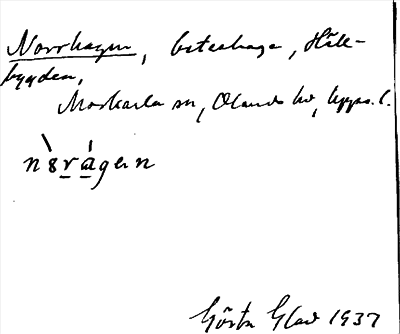 Norrhagen, beteshage, Häll-
byggden,
Morkarla sn, Olands hd, Upps. l.
n ò̀ r á g e n
Gösta Glad 1937